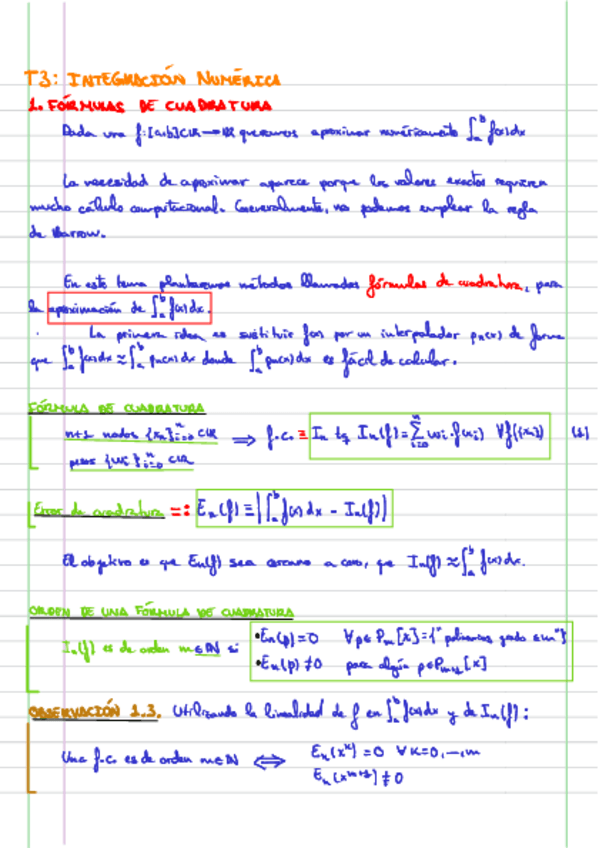 T3: INTEGRACIÓN NUMÉRICA
1. FÓRMULAS DE CUADRATURA
Dada una f:[a,b]⊂ℝ→ℝ queremos aproximar numéricamente ∫_a^b f(x)dx
La necesidad de aproximar aparece porque los valores exactos requieren
mucho cálculo computacional. Generalmente, no podemos emplear la regla
de Barrow.
En este tema plantearemos métodos llamados fórmulas de cuadratura, para
la aproximación de ∫_a^b f(x)dx.
La primera idea es sustituir f(x) por un interpolador p_n(x) de forma
que ∫_a^b f(x)dx ≈ ∫_a^b p_n(x)dx donde ∫_a^b p_n(x)dx es fácil de calcular.
FÓRMULA DE CUADRATURA
n+1 nodos {x_i}_{i=0}^n ⊂ℝ ⇒ f.c. ≡ I_n tq I_n(f)=∑_{i=0}^n ω_i·f(x_i) ∀f({x_i}) (1)
pesos {ω_i}_{i=0}^n ⊂ℝ
Error de cuadratura =: E_n(f) ≡ |∫_a^b f(x)dx - I_n(f)|
El objetivo es que E_n(f) sea cercano a cero, que I_n(f) ≈ ∫_a^b f(x)dx.
ORDEN DE UNA FÓRMULA DE CUADRATURA
I_n(f) es de orden m∈ℕ si •E_n(p)=0 ∀p∈P_m[x]={"polinomios grado ≤m"}
•E_n(p)≠0 para algún p∈P_{m+1}[x]
OBSERVACIÓN 1.3. Utilizando la linealidad de f en ∫_a^b f(x)dx y de I_n(f):
Una f.c. es de orden m∈ℕ ⇔ E_n(x^k)=0 ∀k=0,...,m
E_n(x^{m+1})≠0